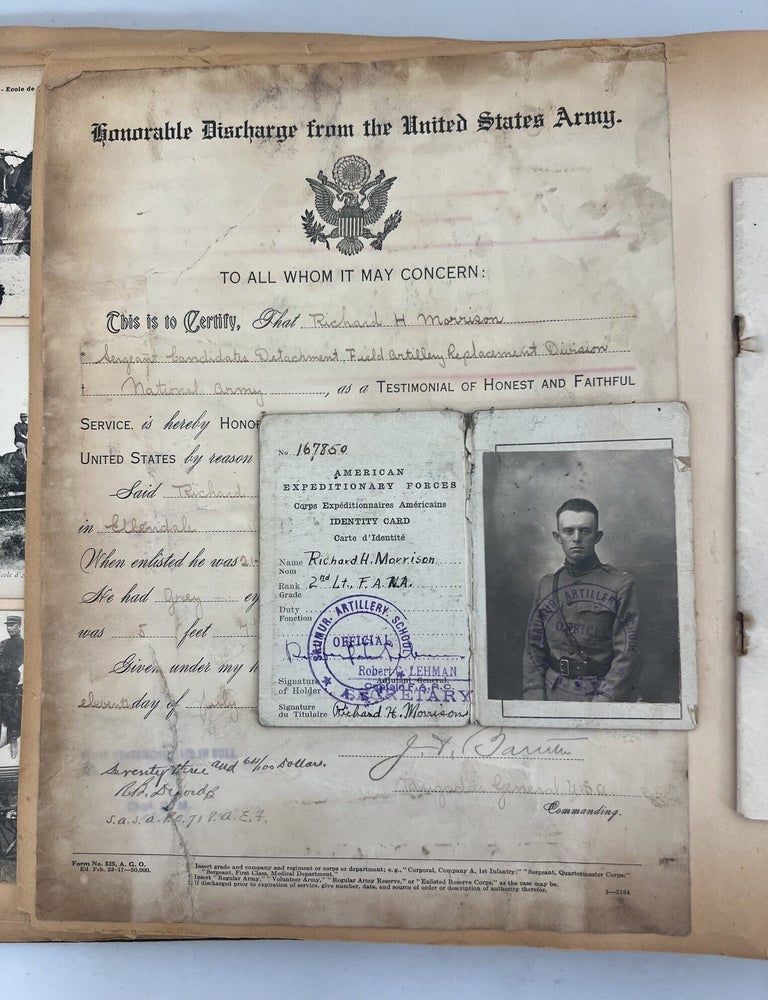 - Ecole de
Honorable Discharge from the United States Army.
TO ALL WHOM IT MAY CONCERN:
This is to Certify, That Richard H. Morrison
* Sergeant Candidates Detachment, Field Artillery Replacement Division
† National Army, as a TESTIMONIAL OF HONEST AND FAITHFUL
SERVICE, is hereby HONO
UNITED STATES by reason
Said Richard
in
When enlisted he was 21
He had Grey ey
was 5 feet
Given under my h
day of July
Seventy three and 64/100 Dollars.
S.A.S. A.P.O. 718 A.E.F.
Brigadier General U.S.A.
Commanding.
Form No. 525, A. G. O.
Ed. Feb. 23-17—50,000.
Insert grade and company and regiment or corps or department; e. g., "Corporal, Company A, 1st Infantry;" "Sergeant, Quartermaster Corps;"
"Sergeant, First Class, Medical Department."
Insert "Regular Army," "Volunteer Army," "Regular Army Reserve," or "Enlisted Reserve Corps," as the case may be.
If discharged prior to expiration of service, give number, date, and source of order or description of authority therefor.
3—3164
No. 167850
AMERICAN
EXPEDITIONARY FORCES
Corps Expéditionnaires Américains
IDENTITY CARD
Carte d'Identité
Name Richard H. Morrison
Nom
Rank 2nd Lt., F.A. N.A.
Grade
Duty
Fonction
SAUMUR ARTILLERY SCHOOL
OFFICIAL
A.E.F.
Robert LEHMAN
Adjutant General.
Captain F.A.
SECRETARY
Signature
of Holder
Signature
du Titulaire Richard H. Morrison
SAUMUR ARTILLERY SCHOOL
OFFICIAL